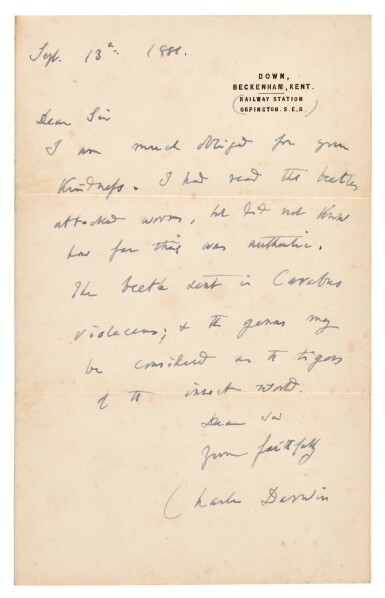 Sept. 13th. 1881.
DOWN,
BECKENHAM, KENT.
(RAILWAY STATION
ORPINGTON. S.E.R.)
Dear Sir
I am much obliged for your
kindness. I had read that beetles
attacked worms, but did not know
how far this was authentic.
The beetle sent is Carabus
violaceus; & the genus may
be considered as the tigers
of the insect world.
Dear Sir
yours faithfully
Charles Darwin